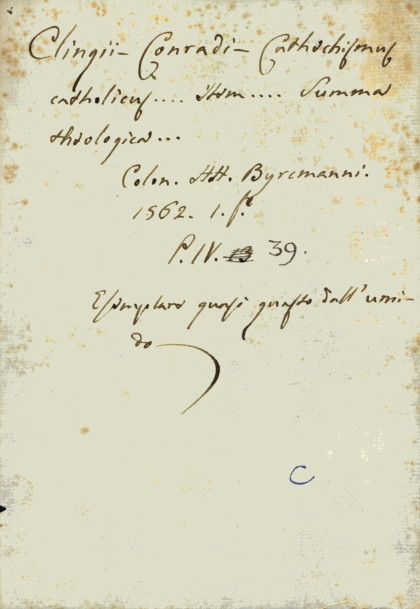 Clingii - Conradi - Cathechismus
catholicus.... item.... Summa
theologica...
Colon. Hh. Byrcmanni.
1562. 1. f.º
P. IV. 39.
Esemplare quasi guasto dall'umi-
do
C